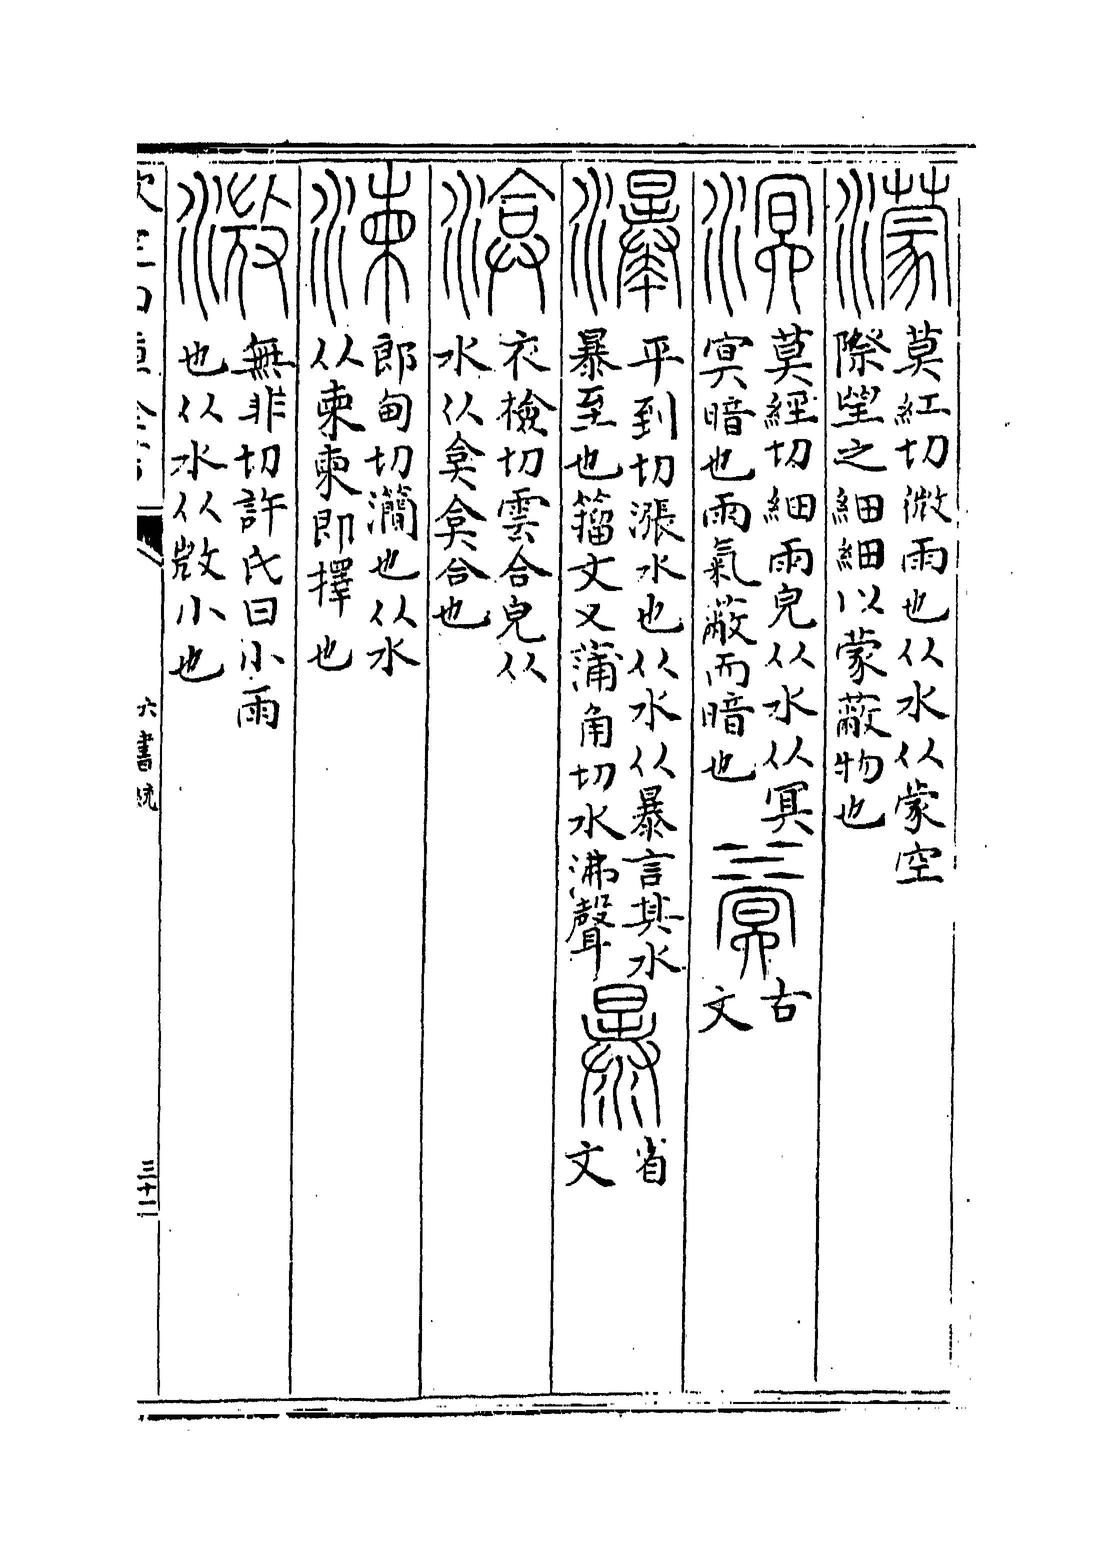 濛
莫紅切微雨也从水从蒙空
際望之細細以蒙蔽物也
溟
莫經切細雨皃从水从冥
㝠暗也雨氣蔽而暗也
古
文
瀑
平到切漲水也从水从暴言其水
暴至也籀文又蒲角切水沸聲
省
文
渰
衣檢切雲合皃从
水从弇弇合也
湅
郎甸切灡也从水
从柬柬即擇也
溦
無非切許氏曰小雨
也从水从㣲小也
六書統
三十二